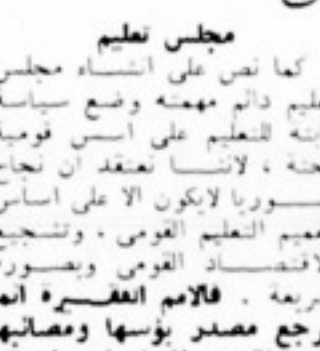 مجلس تعليم
كما نص على انشـــاء مجلس
عليم دائم مهمته وضع سياسة
ابتة للتعليم على اسس قومية
حتة ، لاننـــا نعتقد ان نجاح
ـــوريا لايكون الا على اساس
عميم التعليم القومى ، وتشجيع
لاقتصـــاد القومى وبصـــورة
ريعة . فالامم الفقـــيرة انما
رجع مصدر بؤسها ومصائبها